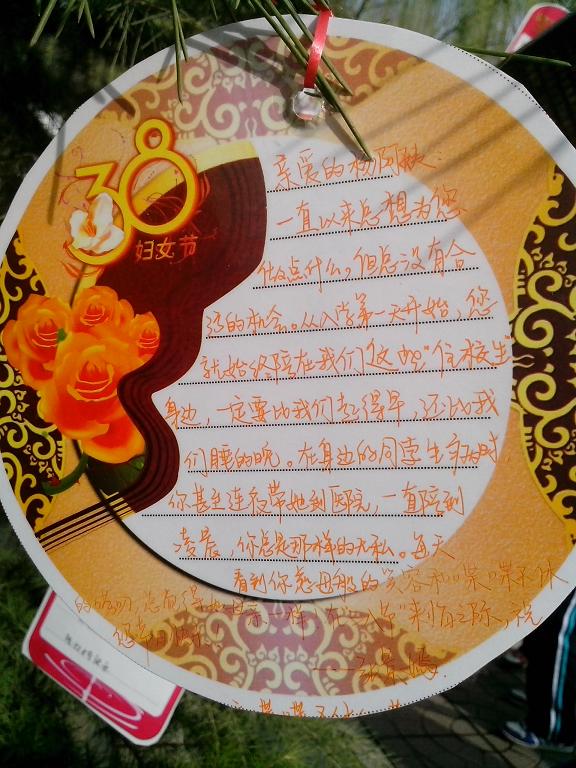 38
妇女节
亲爱的杨阿姨:
一直以来总想为您
做点什么,但总没有合
适的机会。从入学第一天开始,您
就始终陪在我们这些"住校生"
身边,一定要比我们起得早,还比我
们睡的晚。在身边的同学生病时,
你甚至连夜带她到医院,一直陪到
凌晨,你总是那样的无私。每天
看到你慈母般的笑容和"喋"喋不休
的 总
在 来临之际,祝
您 快乐